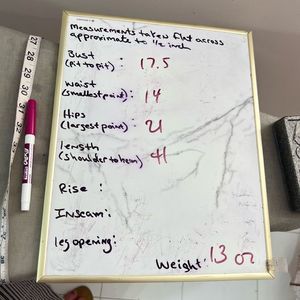 measurements taken flat across
approximate to 1/2 inch
Bust
(pit to pit) : 17.5
waist
(smallest point) : 14
Hips
(largest point) : 21
length
(shoulder to hem) : 41
Rise :
Inseam :
leg opening :
Weight : 13 oz
27
28
29
30
31
32
33